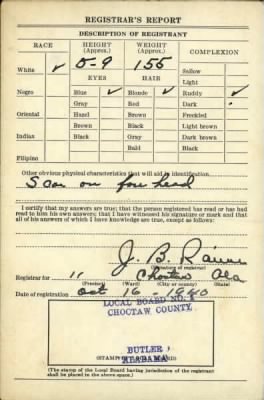 REGISTRAR'S REPORT
DESCRIPTION OF REGISTRANT
RACE HEIGHT (Approx.) WEIGHT (Approx.) COMPLEXION
White ✓ 5-9 155 Sallow
EYES HAIR Light
Negro Blue ✓ Blonde ✓ Ruddy ✓
Gray Red Dark
Oriental Hazel Brown Freckled
Brown Black Light brown
Indian Black Gray Dark brown
Bald Black
Filipino
Other obvious physical characteristics that will aid in identification
Scar on fore head
I certify that my answers are true; that the person registered has read or has had
read to him his own answers; that I have witnessed his signature or mark and that
all of his answers of which I have knowledge are true, except as follows:
J. B.
(Signature of registrar)
Registrar for 11 Choctaw Ala
(Precinct) (Ward) (City or county) (State)
Date of registration Oct 16 - 1940
LOCAL BOARD NO. 1
CHOCTAW COUNTY
BUTLER
ALABAMA
(STAMP OF BOARD)
(The stamp of the Local Board having jurisdiction of the registrant
shall be placed in the above space.)